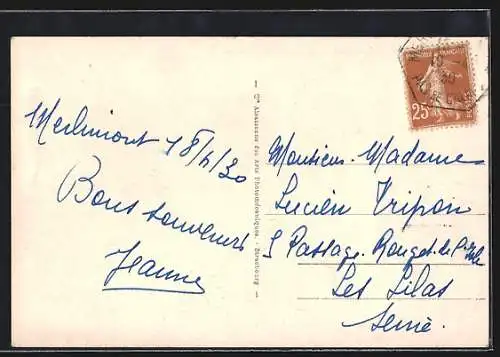 Merlimont 18/4/30
Bons souvenirs
Jeanne
Cie Alsacienne des Arts Photomécaniques - Strasbourg
25
Monsieur. Madame
Lucien Tripon
Passage Rouget de l'Isle
Les Lilas
Seine